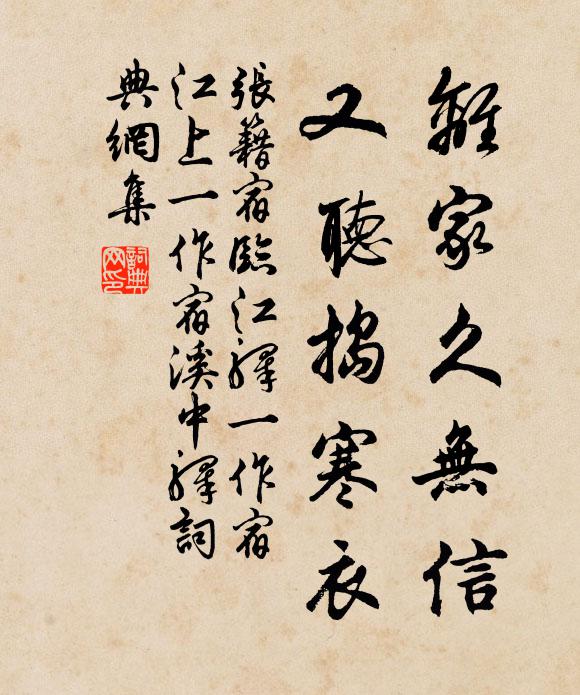 離家久無信
又聽搗寒衣
張籍宿臨江驛一作宿
江上一作宿溪中驛詞
典網集
詞典網印